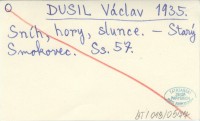 DUSIL Václav 1935.
Sníh, hory, slunce. – Starý
Smokovec. Ss. 57.